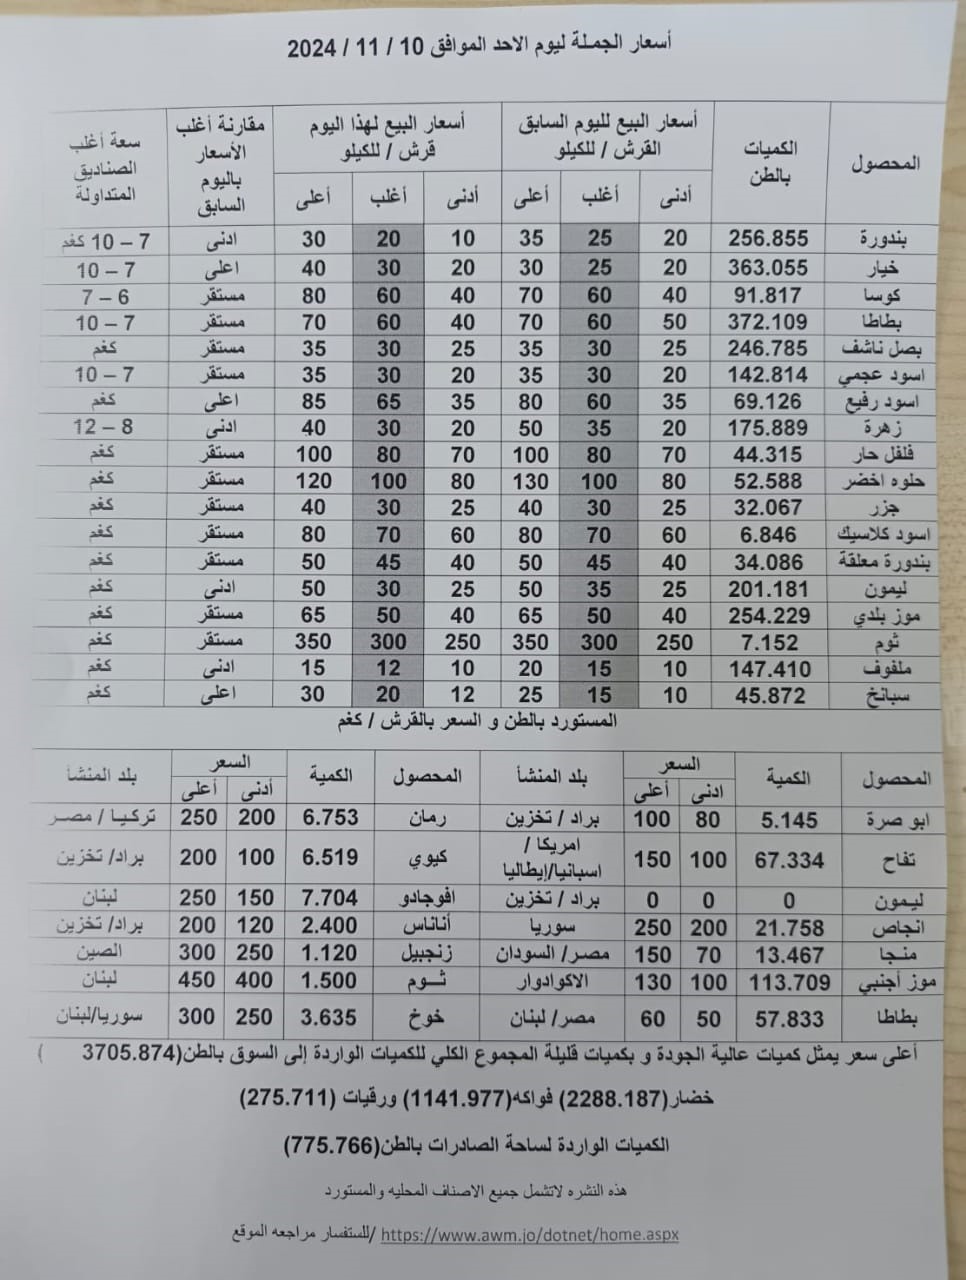 أسعار الجملة ليوم الاحد الموافق 10 / 11 / 2024
المحصول الكميات بالطن أسعار البيع لليوم السابق القرش / للكيلو أسعار البيع لهذا اليوم قرش / للكيلو مقارنة أغلب الأسعار باليوم السابق سعة أغلب الصناديق المتداولة
أدنى أغلب أعلى أدنى أغلب أعلى
بندورة 256.855 20 25 35 10 20 30 ادنى 7 – 10 كغم
خيار 363.055 20 25 30 20 30 40 اعلى 7 – 10
كوسا 91.817 40 60 70 40 60 80 مستقر 6 – 7
بطاطا 372.109 50 60 70 40 60 70 مستقر 7 – 10
بصل ناشف 246.785 25 30 35 25 30 35 مستقر كغم
اسود عجمي 142.814 20 30 35 20 30 35 مستقر 7 – 10
اسود رفيع 69.126 35 60 80 35 65 85 اعلى كغم
زهرة 175.889 20 35 50 20 30 40 أدنى 8 – 12
فلفل حار 44.315 70 80 100 70 80 100 مستقر كغم
حلوه اخضر 52.588 80 100 130 80 100 120 مستقر كغم
جزر 32.067 25 30 40 25 30 40 مستقر كغم
اسود كلاسيك 6.846 60 70 80 60 70 80 مستقر كغم
بندورة معلقة 34.086 40 45 50 40 45 50 مستقر كغم
ليمون 201.181 25 35 50 25 30 50 ادنى كغم
موز بلدي 254.229 40 50 65 40 50 65 مستقر كغم
ثوم 7.152 250 300 350 250 300 350 مستقر كغم
ملفوف 147.410 10 15 20 10 12 15 ادنى كغم
سبانخ 45.872 10 15 25 12 20 30 اعلى كغم
المستورد بالطن و السعر بالقرش / كغم
المحصول الكمية السعر بلد المنشأ المحصول الكمية السعر بلد المنشأ
ادنى أعلى أدنى أعلى
ابو صرة 5.145 80 100 براد / تخزين رمان 6.753 200 250 تركيا / مصر
تفاح 67.334 100 150 امريكا / اسبانيا/إيطاليا كيوي 6.519 100 200 براد/ تخزين
ليمون 0 0 0 براد / تخزين افوجادو 7.704 150 250 لبنان
انجاص 21.758 200 250 سوريا أناناس 2.400 120 200 براد/ تخزين
منجا 13.467 70 150 مصر/ السودان زنجبيل 1.120 250 300 الصين
موز أجنبي 113.709 100 130 الاكوادوار ثـوم 1.500 400 450 لبنان
بطاطا 57.833 50 60 مصر/ لبنان خوخ 3.635 250 300 سوريا/لبنان
أعلى سعر يمثل كميات عالية الجودة و بكميات قليلة المجموع الكلي للكميات الواردة إلى السوق بالطن(3705.874 )
خضار(2288.187) فواكه(1141.977) ورقيات (275.711)
الكميات الواردة لساحة الصادرات بالطن(775.766)
هذه النشره لاتشمل جميع الاصناف المحليه والمستورد
https://www.awm.jo/dotnet/home.aspx /للستفسار مراجعه الموقع